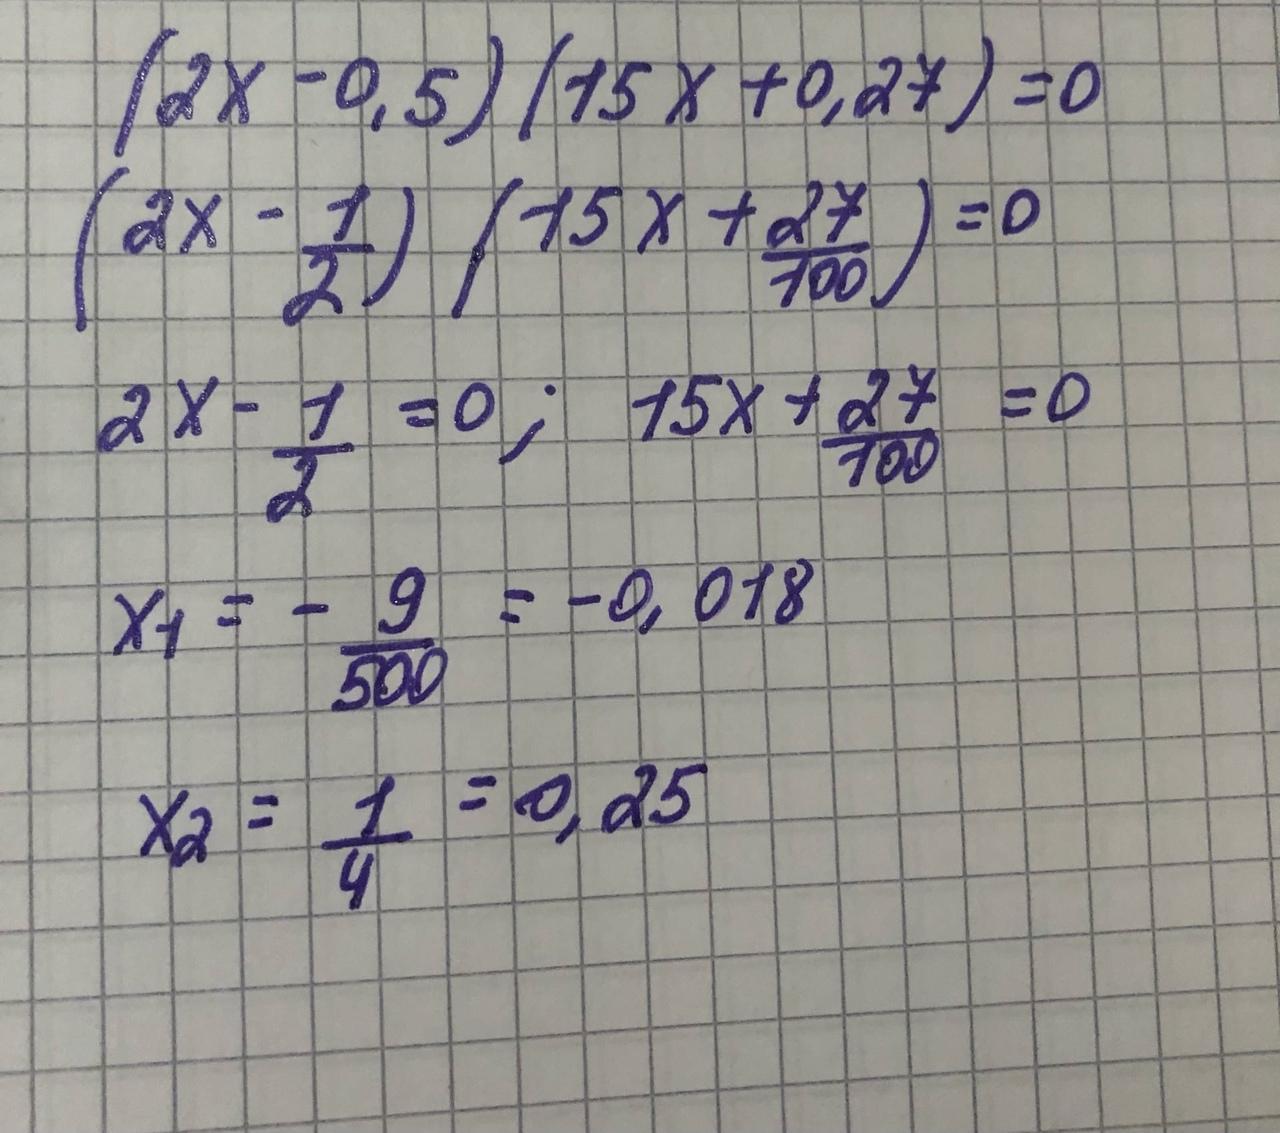 (2x - 0,5)(15x + 0,27) = 0
(2x - 1/2) (15x + 27/100) = 0
2x - 1/2 = 0; 15x + 27/100 = 0
x1 = - 9/500 = -0,018
x2 = 1/4 = 0,25